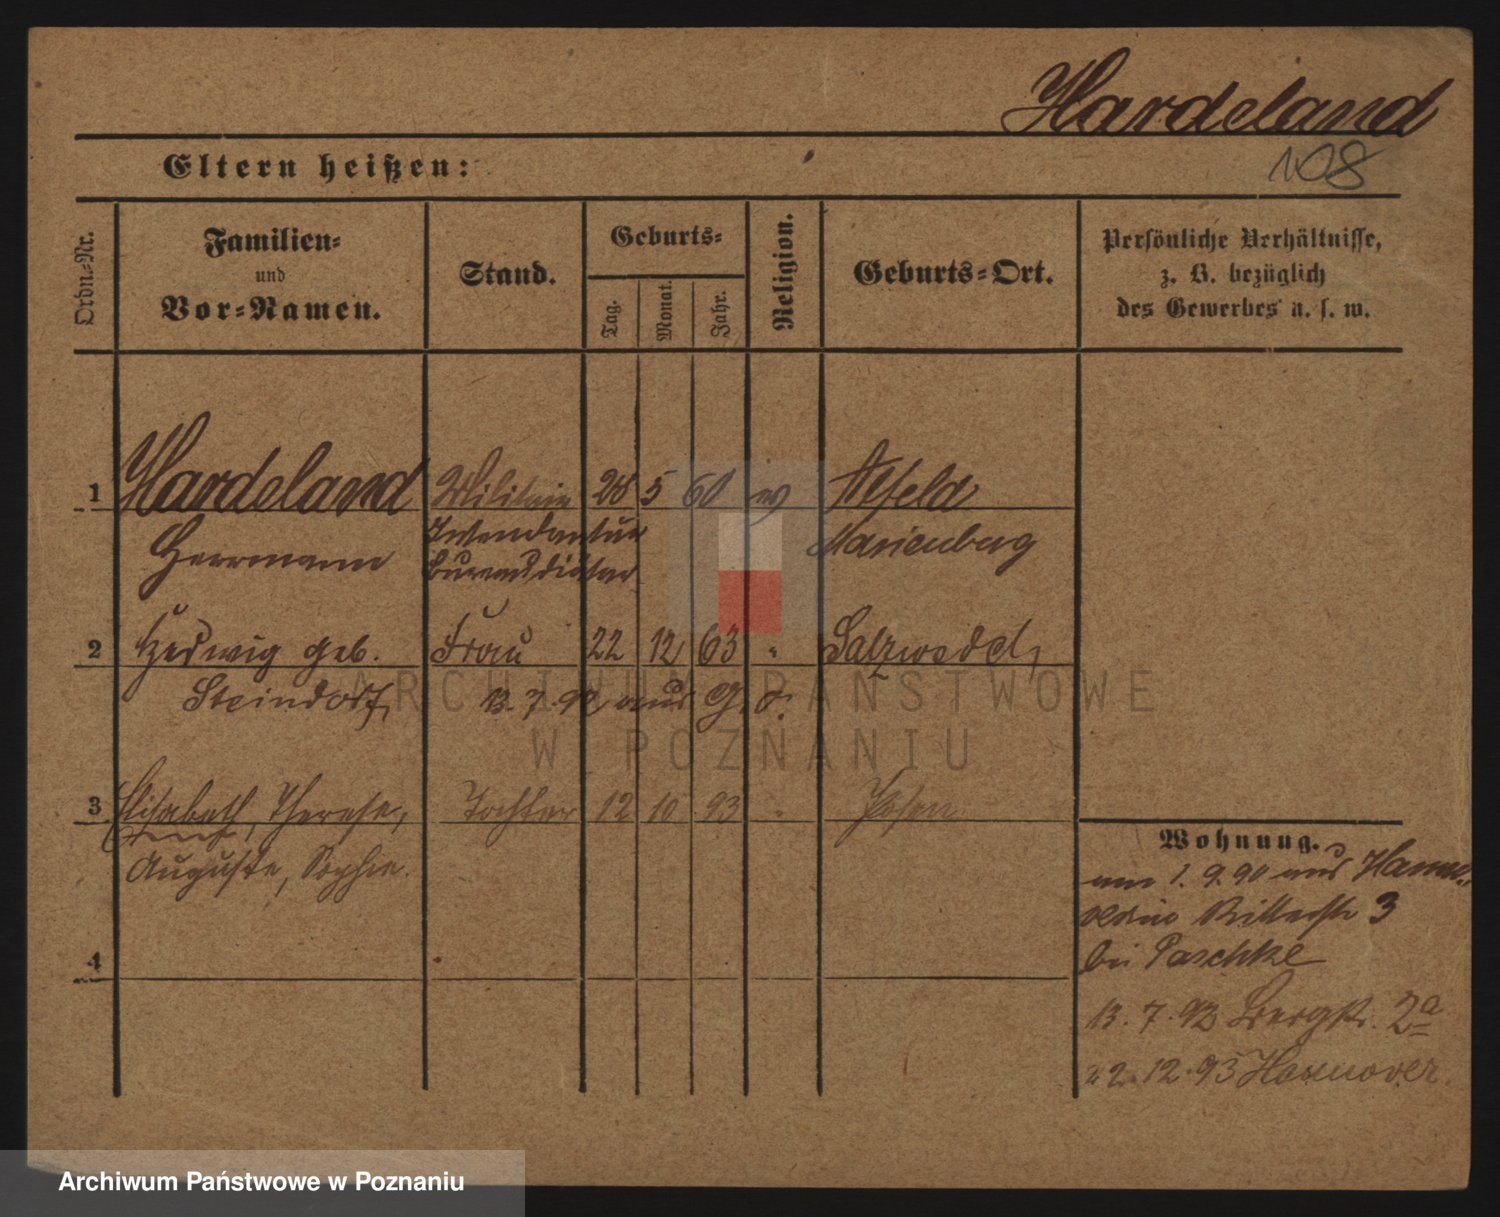 Hardeland
108
Eltern heißen:
Ordn=Nr.
Familien=
und
Vor=Namen.
Stand.
Geburts=
Tag.
Monat.
Jahr.
Religion.
Geburts=Ort.
Persönliche Verhältnisse,
z. B. bezüglich
des Gewerbes u. s. w.
1 Hardeland Militair 28 5 60 ev Alfeld
Herrmann Intendantur Marienburg
Bureaudiätar
2 Hedwig geb. Frau 22 12 63 " Salzwedel,
Steindorf, 13. 7. 93 aus
3 Elisabeth, Therese, Tochter 12 10 93 " Posen
Auguste, Sophie.
4
Wohnung.
1. 9. 90 aus
Ritterstr 3
bei Paschke
13. 7. 93 Bergstr. 2a
22. 12. 93 Hannover.
ARCHIWUM PAŃSTWOWE
W POZNANIU
Archiwum Państwowe w Poznaniu